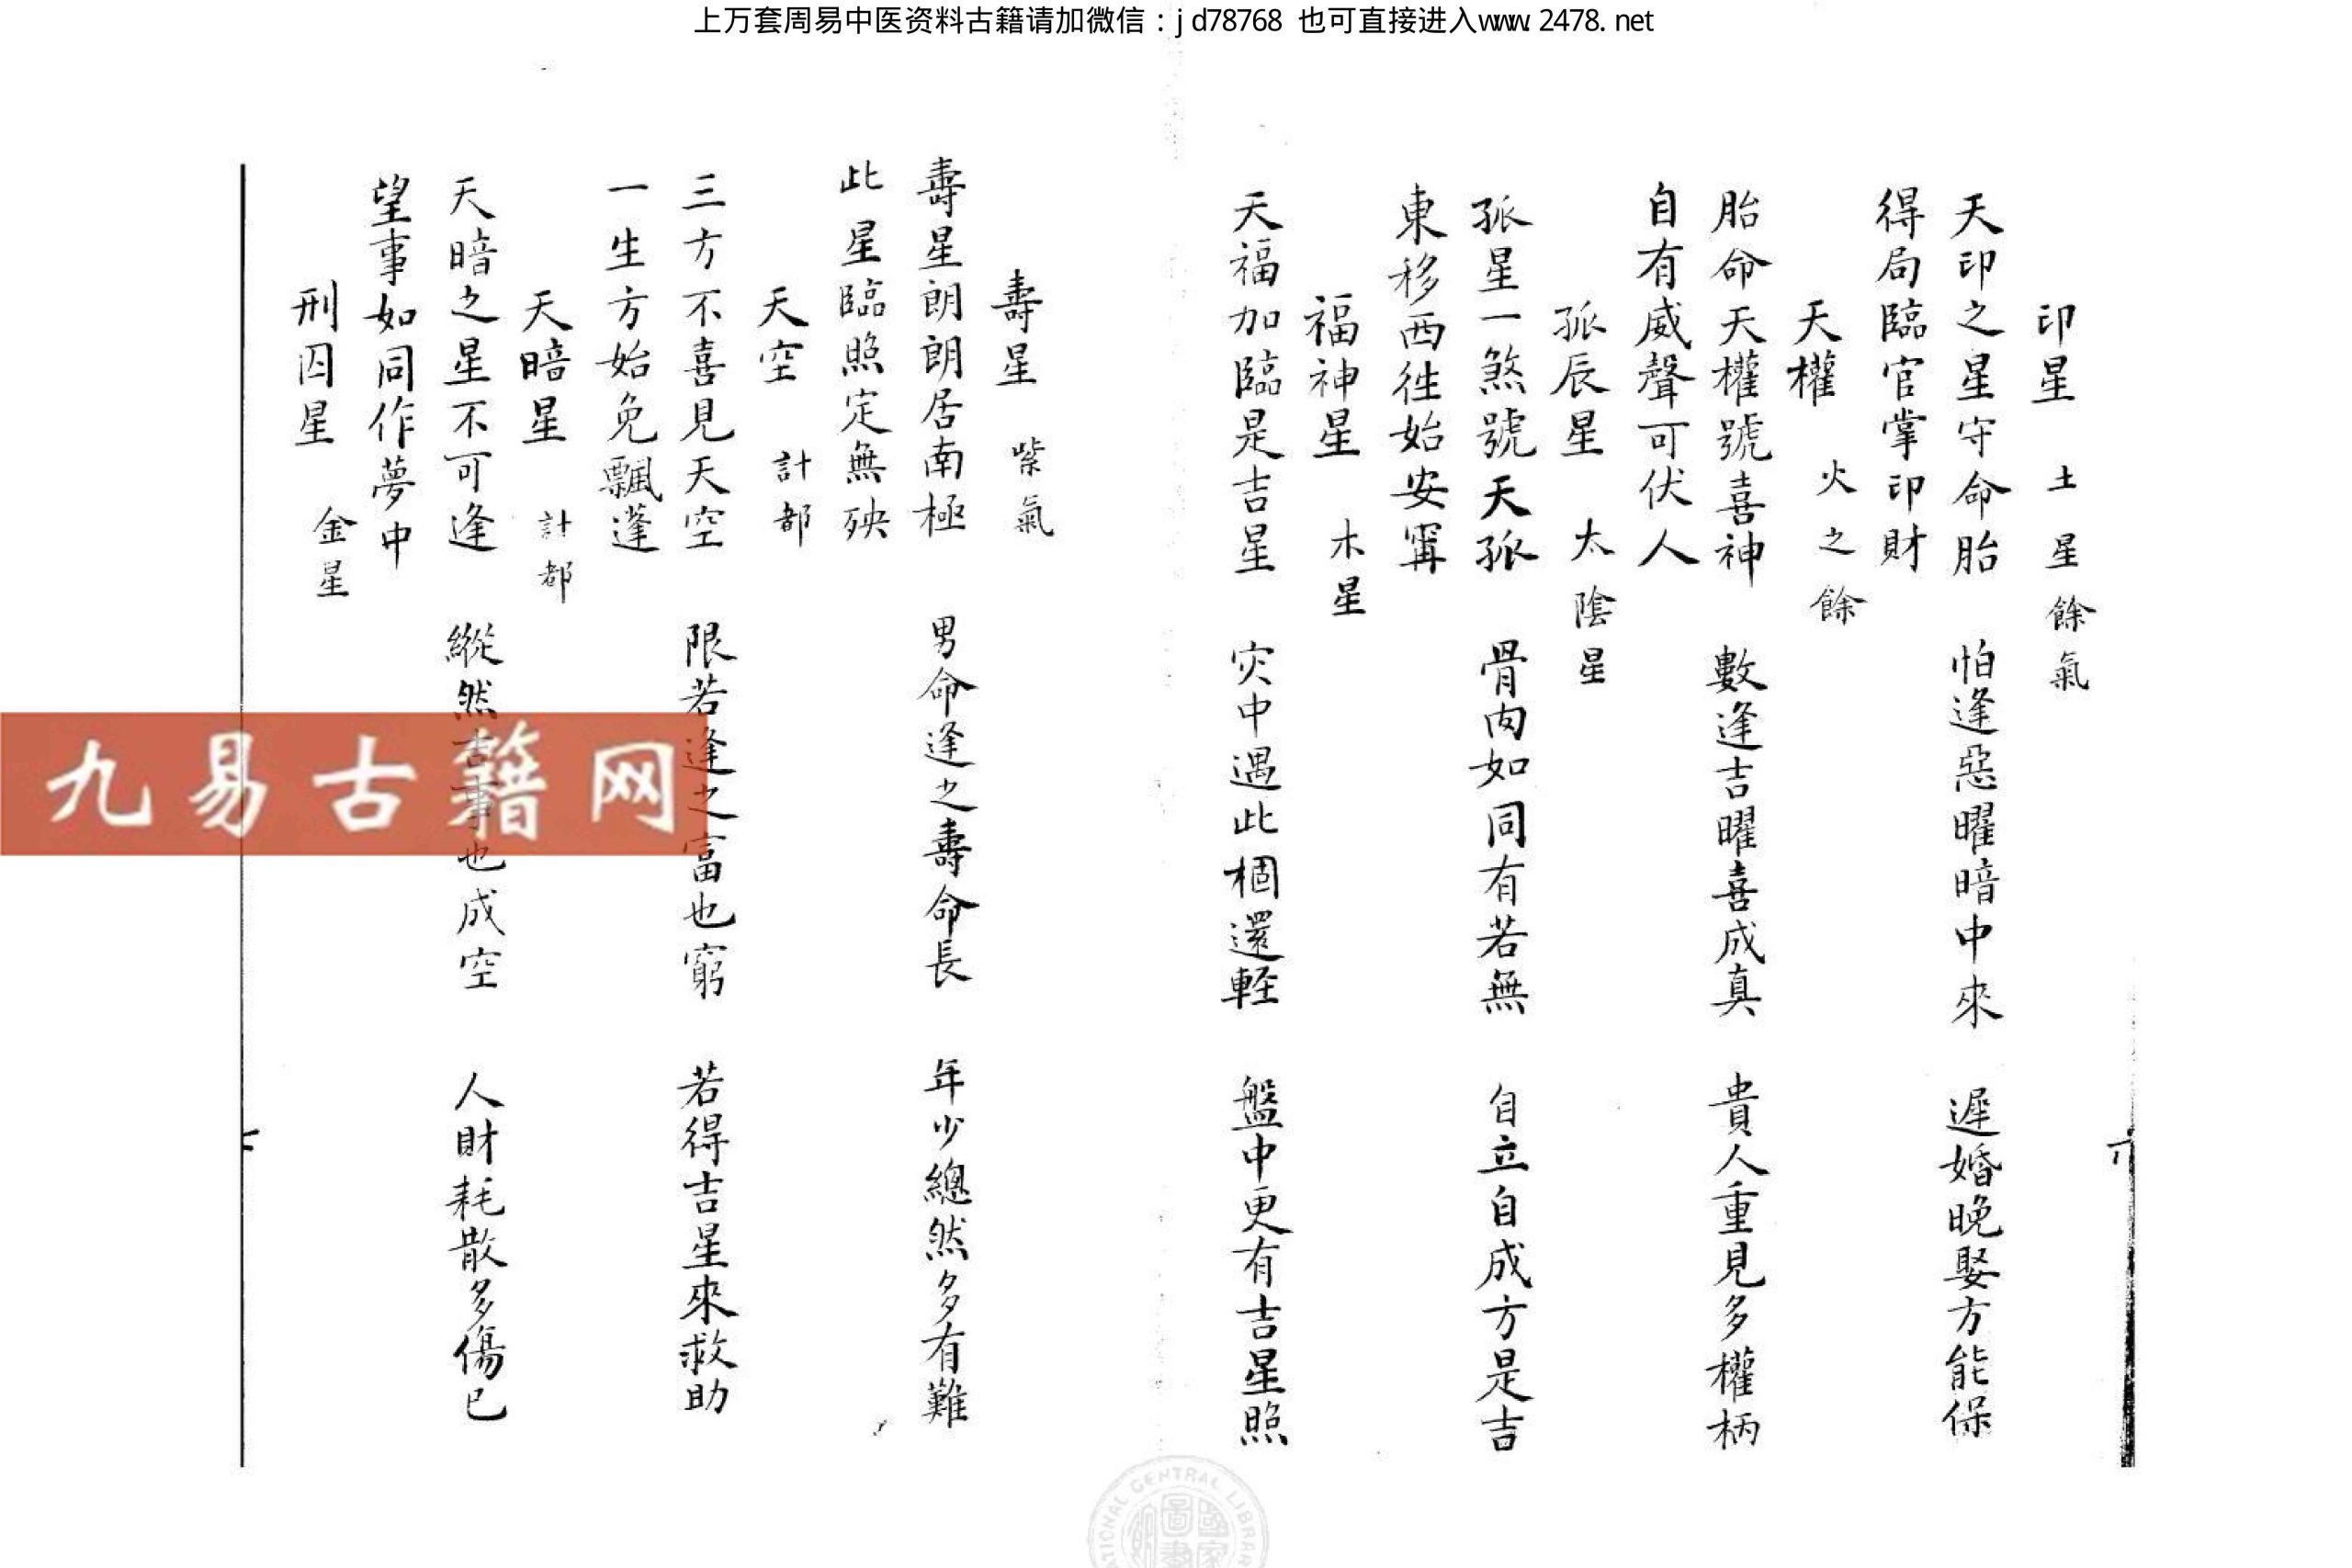 上万套周易中医资料古籍请加微信：jd78768 也可直接进入www.2478.net
印星 土星餘氣
天印之星守命胎 怕逢惡曜暗中來 遲婚晚娶方能保
得局臨官掌印財
天權 火之餘
胎命天權號喜神 數逢吉曜喜成真 貴人重見多權柄
自有威聲可伏人
孤辰星 太陰星
孤星一煞號天孤 骨肉如同有若無 自立自成方是吉
東移西徃始安甯
福神星 木星
天福加臨是吉星 灾中遇此棝還輕 盤中更有吉星照
壽星 紫氣
壽星朗朗居南極 男命逢之壽命長 年少總然多有難
此星臨照定無殃
天空 計都
三方不喜見天空 限若逢之富也窮 若得吉星來救助
一生方始免飄蓬
天暗星 計都
天暗之星不可逢 縱然吉事也成空 人財耗散多傷已
望事如同作夢中
刑囚星 金星
九易古籍网
NATIONAL CENTRAL LIBRARY
國家圖書館